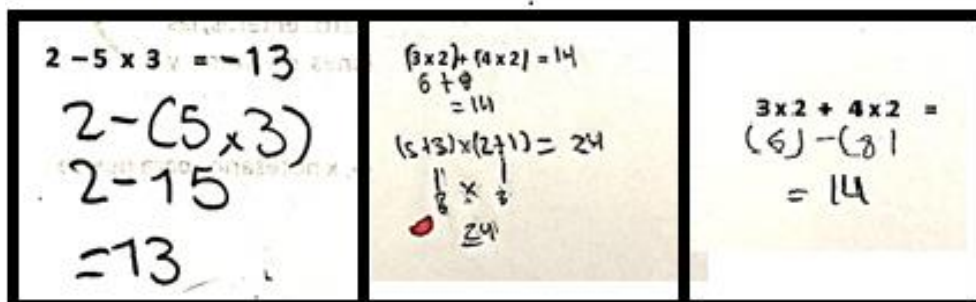 2 - 5 x 3 = -13
2-(5x3)
2-15
=13
(3x2)+ (4x2) = 14
6 + 8
= 14
(5+3)x(2+1) = 24
8 x 3
24
3x2 + 4x2 =
(6) - (8)
= 14